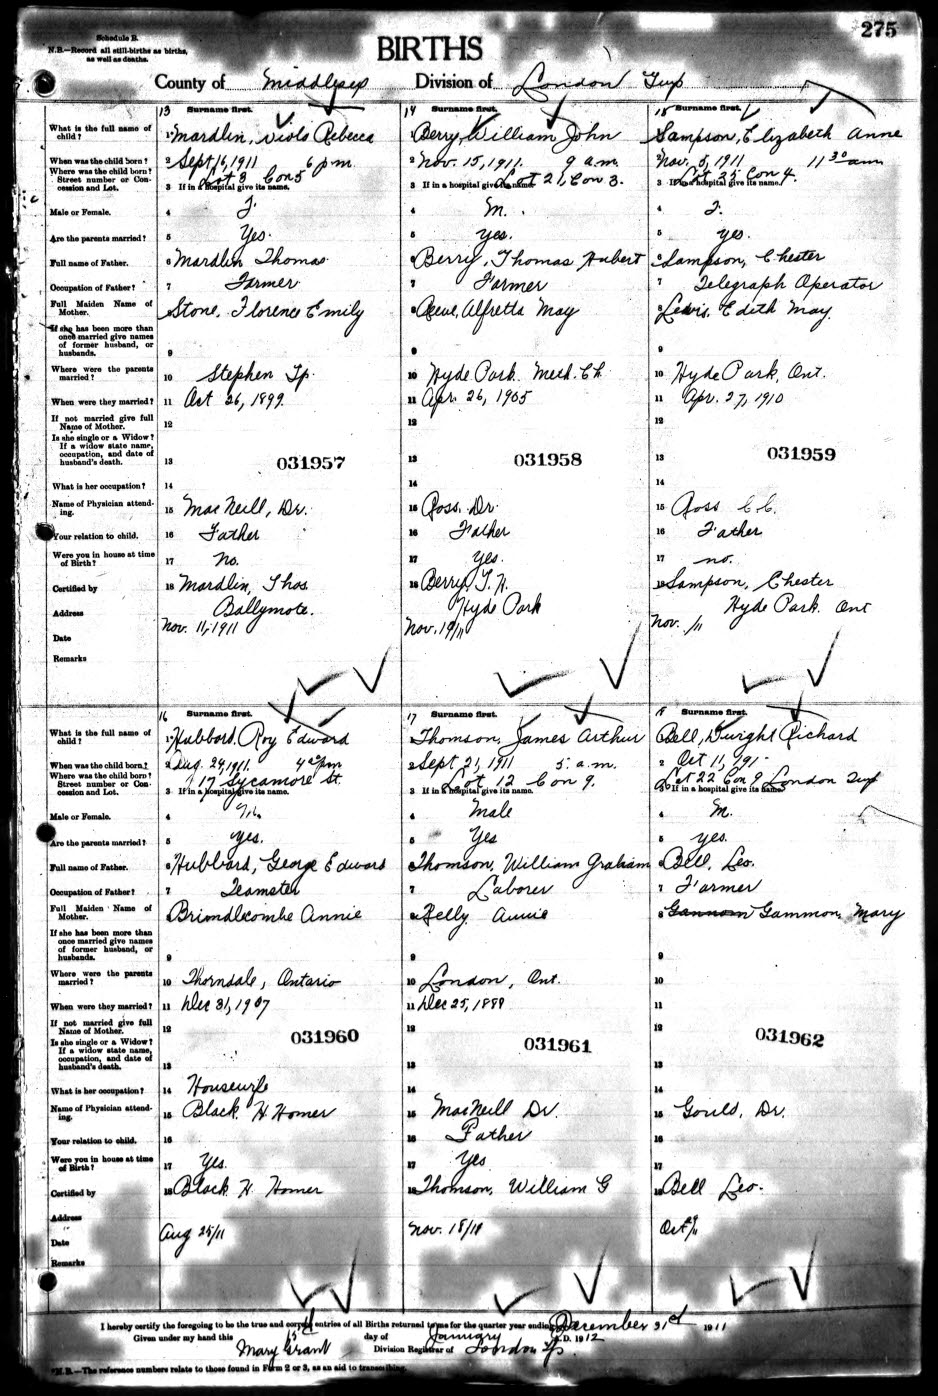 275
Schedule B.
N.B.—Record all still-births as births,
as well as deaths.
BIRTHS
County of Middlesex Division of London Twp
13 Surname first. 14 Surname first. 15 Surname first.
What is the full name of child? 1 Mardlin, Viola Rebecca 1 Berry, William John Sampson, Elizabeth Anne
When was the child born? 2 Sept 16, 1911 6 pm 2 Nov. 15, 1911. 9 a.m. 2 Nov. 5, 1911 11 30 am
Where was the child born? Street number or Concession and Lot. 3 If in a hospital give its name. Lot 3 Con 5 3 If in a hospital give its name. Lot 21, Con 3. 3 If in a hospital give its name. Lot 25 Con 4.
Male or Female. 4 F. 4 M. 4 F.
Are the parents married? 5 Yes. 5 yes. 5 yes.
Full name of Father. 6 Mardlin Thomas 6 Berry, Thomas Hubert 6 Sampson, Chester
Occupation of Father? 7 Farmer 7 Farmer 7 Telegraph Operator
Full Maiden Name of Mother. 8 Stone, Florence Emily 8 Alfretta May 8 Lewis, Edith May
If she has been more than once married give names of former husband, or husbands. 9 9 9
Where were the parents married? 10 Stephen Tp. 10 Hyde Park Meth. Ch. 10 Hyde Park, Ont.
When were they married? 11 Oct 26, 1899. 11 Apr. 26, 1905 11 Apr. 27, 1910
If not married give full Name of Mother. 12 12 12
Is she single or a Widow? If a widow state name, occupation, and date of husband's death. 13 031957 13 031958 13 031959
What is her occupation? 14 14 14
Name of Physician attending. 15 MacNeill, Dr. 15 Ross. Dr. 15 Ross C.C.
Your relation to child. 16 Father 16 Father 16 Father
Were you in house at time of Birth? 17 No. 17 Yes. 17 no.
Certified by 18 Mardlin, Thos. 18 Berry T. H. 18 Sampson, Chester
Address Ballymote. Hyde Park Hyde Park. Ont
Date Nov. 11, 1911 Nov. 19/11 Nov. /11
Remarks
16 Surname first. 17 Surname first. Surname first.
What is the full name of child? 1 Hubbard, Roy Edward 1 Thomson, James Arthur Bell, Dwight Richard
When was the child born? 2 Aug. 24, 1911. pm 2 Sept 21, 1911 5. a.m. 2 Oct 11, 191
Where was the child born? Street number or Concession and Lot. 3 If in a hospital give its name. 117 Sycamore St. 3 If in a hospital give its name. Lot 12 Con 9. 3 If in a hospital give its name. Lot 22 Con 9 London Twp
Male or Female. 4 4 Male 4 M.
Are the parents married? 5 yes. 5 Yes 5 yes.
Full name of Father. 6 Hubbard, George Edward Thomson, William Graham 6 Bell, Leo.
Occupation of Father? 7 Teamster 7 Laborer 7 Farmer
Full Maiden Name of Mother. Brimdlecombe Annie 8 Kelly Annie 8 Gannom Gammon, Mary
If she has been more than once married give names of former husband, or husbands. 9 9 9
Where were the parents married? 10 Thorndale, Ontario 10 London, Ont. 10
When were they married? 11 Dec 31, 1907 11 Dec 25, 1888 11
If not married give full Name of Mother. 12 12 12
Is she single or a Widow? If a widow state name, occupation, and date of husband's death. 13 031960 13 031961 13 031962
What is her occupation? 14 Housewife 14 14
Name of Physician attending. 15 Black H Homer 15 MacNeill Dr. 15 Gould, Dr.
Your relation to child. 16 16 Father 16
Were you in house at time of Birth? 17 Yes. 17 Yes 17
Certified by 18 Black H Homer 18 Thomson, William G 18 Bell Leo.
Address
Date Aug 25/11 Nov. 18/11 Oct
Remarks
I hereby certify the foregoing to be the true and correct entries of all Births returned to me for the quarter year ending December 31st 1911
Given under my hand this day of January A.D. 1912
Mary Grant Division Registrar of London Tp.
N.B.—The reference numbers relate to those found in Form 2 or 3, as an aid to transcribing.